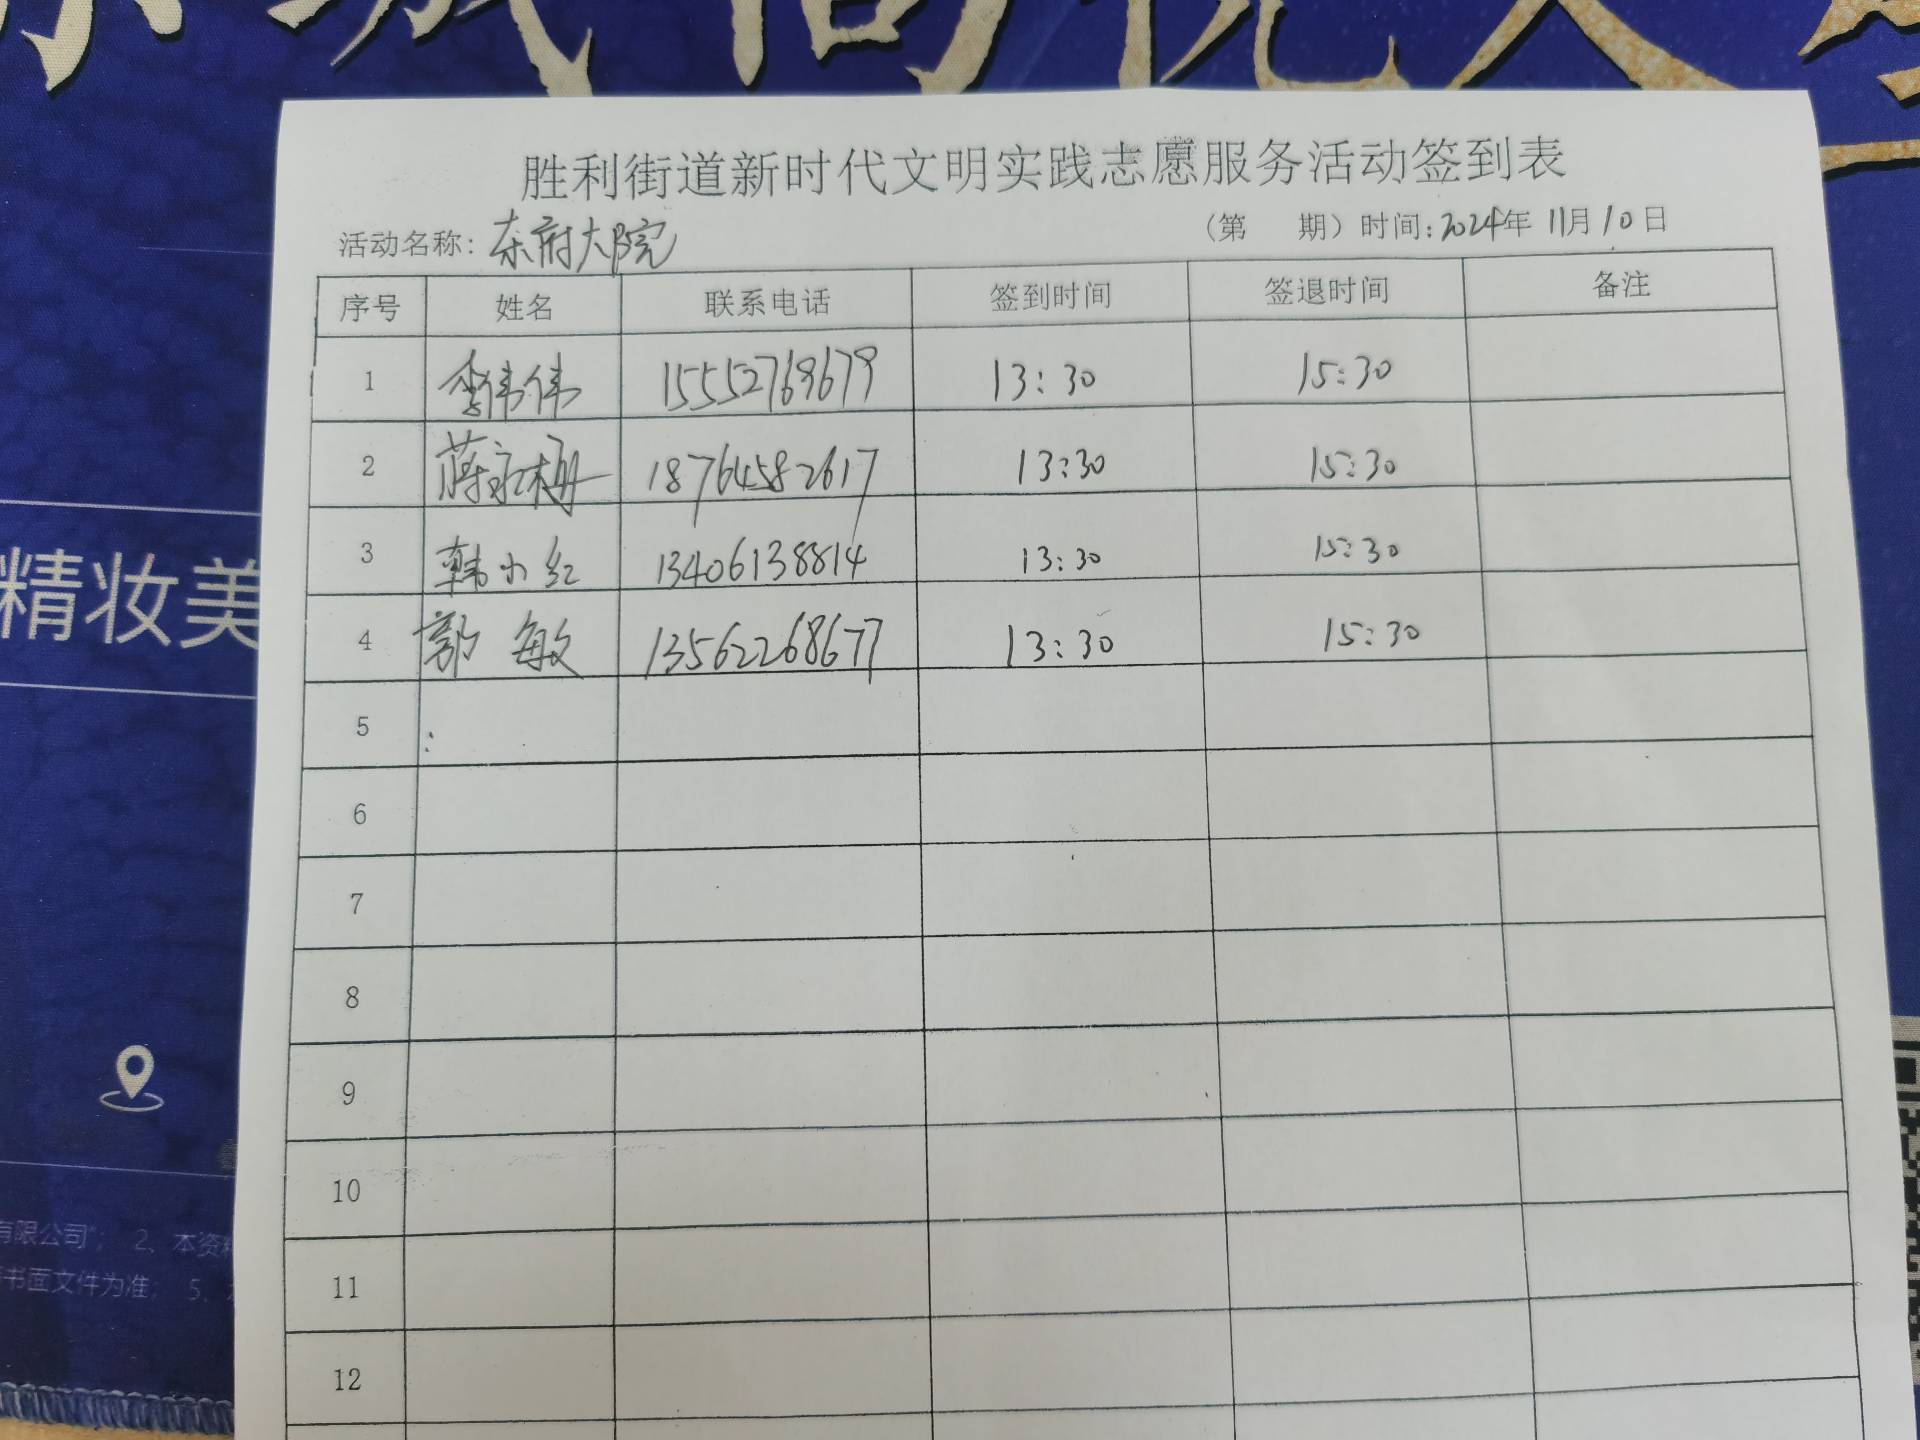 精妆美
有限公司"； 2、本资料
书面文件为准； 5、
胜利街道新时代文明实践志愿服务活动签到表
活动名称：东府大院 （第 期）时间：2024年 11月 10日
序号 姓名 联系电话 签到时间 签退时间 备注
1 李伟伟 15552769679 13:30 15:30
2 蒋永梅 18764582617 13:30 15:30
3 韩小红 13406138814 13:30 15:30
4 郭敏 13562268677 13:30 15:30
5
6
7
8
9
10
11
12